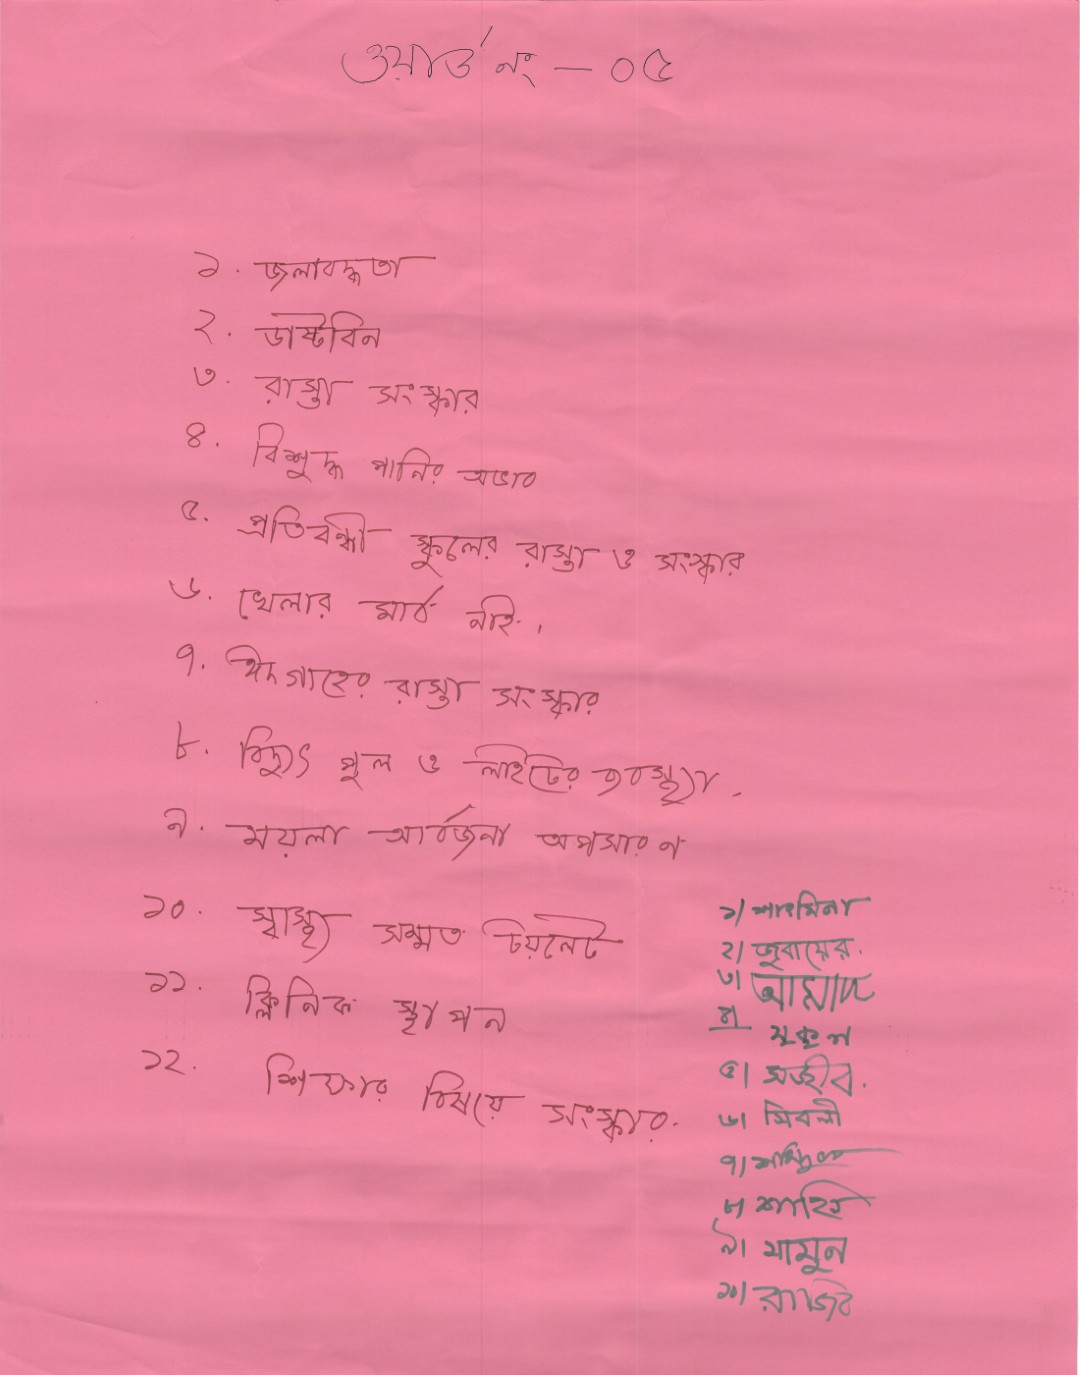 ওয়ার্ড নং - ০৫
১. জলাবদ্ধতা
২. ডাষ্টবিন
৩. রাস্তা সংস্কার
৪. বিশুদ্ধ পানির অভাব
৫. প্রতিবন্ধী স্কুলের রাস্তা ও সংস্কার
৬. খেলার মাঠ নাই.
৭. ঈদগাহের রাস্তা সংস্কার
৮. বিদ্যুৎ পুল ও লাইটের ব্যবস্থা.
৯. ময়লা আর্বজনা অপসারণ
১০. স্বাস্থ্য সম্মত টয়লেট
১১. ক্লিনিক স্থাপন
১২. শিক্ষার বিষয়ে সংস্কার.
১/ শারমিনা
২/ জুবায়ের.
৩/
৪/ মুকুল
৫/ সজীব.
৬/ শিবলী
৭/
৮/
৯/ মামুন
১০/ রাজিব